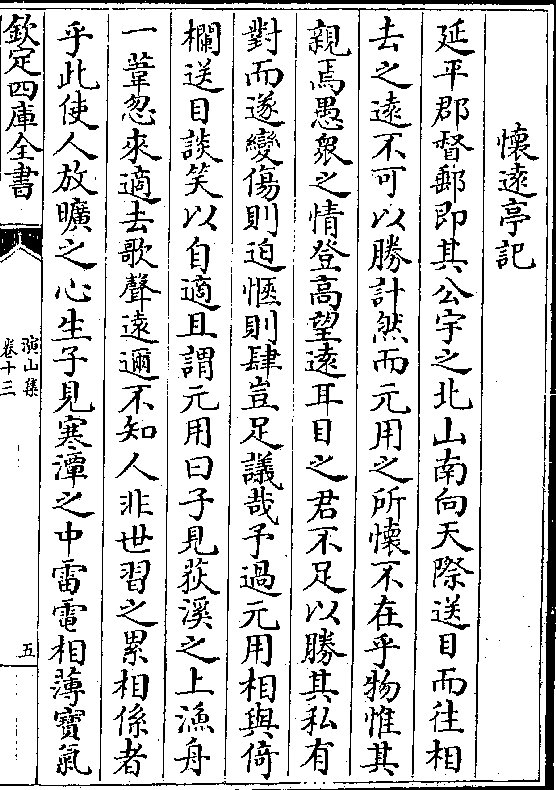 懷遠亭記
延平郡督郵即其公宇之北山南向天際送目而往相
去之遠不可以勝計然而元用之所懷不在乎物惟其
親焉愚衆之情登高望遠耳目之君不足以勝其私有
對而遂變傷則迫愜則肆豈足議哉予過元用相與倚
欄送目談笑以自適且謂元用曰子見荻溪之上漁舟
一葦忽來適去歌聲遠邇不知人非世習之累相係者
乎此使人放曠之心生子見寒潭之中雷電相薄寳氣
欽定四庫全書
演山集
卷十三
五